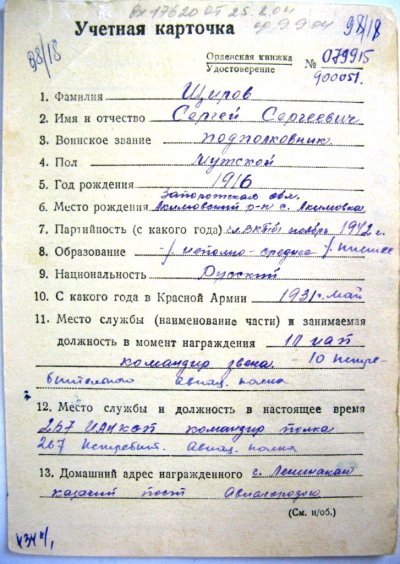 вх 17620 от 25.2.04
98/18
98/18
Учетная карточка
Орденская книжка
Удостоверение
№ 079915
900051.
1. Фамилия Щиров
2. Имя и отчество Сергей Сергеевич
3. Воинское звание подполковник
4. Пол мужской
5. Год рождения 1916
Запорожская обл.
6. Место рождения Акимовский р-н с. Акимовка
7. Партийность (с какого года) ноябрь 1942 г.
8. Образование неполно-среднее
9. Национальность Русский
10. С какого года в Красной Армии 1931 г. май
11. Место службы (наименование части) и занимаемая
должность в момент награждения 10 иап
командир звена. – 10 истре-
бительного авиац. полка
12. Место службы и должность в настоящее время
267 командир полка
267 Истребит. Авиац. полка
13. Домашний адрес награжденного г. Ленинакан
казачий пост Авиагородок
(См. н/об.)